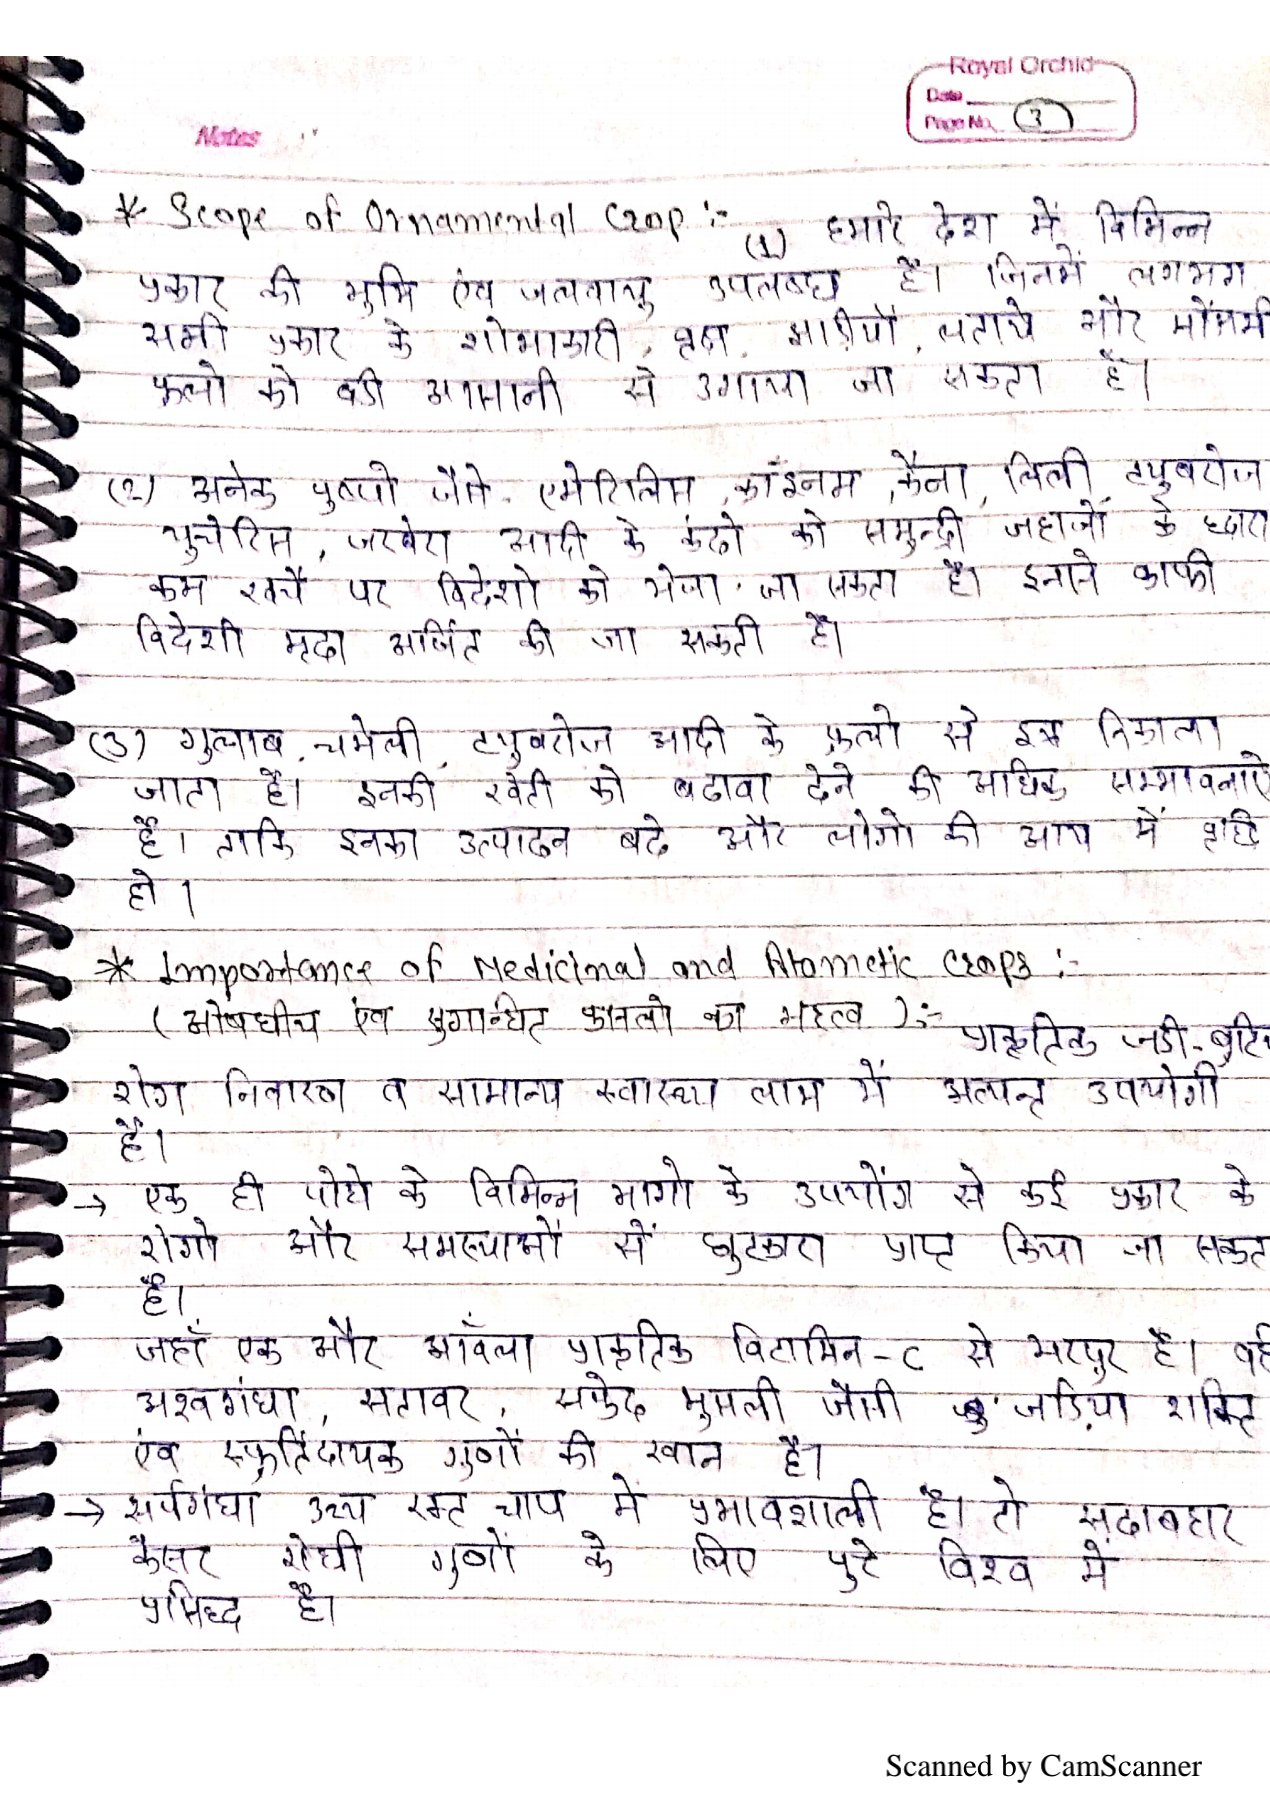 Royal Orchid
Date
Page No. 3
Notes
* Scope of Ornamental Crop :- (1) हमारे देश में विभिन्न
प्रकार की भुमि एंव जलवायु उपलब्ध है। जिनमें लगभग
सभी प्रकार के शोभाकारी, वृक्ष, झाड़ियाँ, लताये और मौसमी
फुलो को बडी आसानी से उगाया जा सकता है।
(2) अनेक पुष्पो जैसे- एमेरिलिस, क्राँइनम, कैना, लिली, ट्युबरोज
युचेरिस, जरबेरा आदी के कंदो को समुन्द्री जहाजों के द्वारा
कम खर्चे पर विदेशो को भेजा जा सकता है। इनसे काफी
विदेशी मुद्रा अर्जित की जा सकती है।
(3) गुलाब, चमेली, ट्युबरोज आदी के फुलो से इत्र निकाला
जाता है। इनकी खेती को बढावा देने की अधिक सम्भावनाऐ
है। ताकि इनका उत्पादन बढे और लोगो की आय में वृद्धि
हो।
* Importance of Medicinal and Atometic Crops :-
(औषधीय एंव सुगान्धित फसलो का महत्व ):- प्राकृतिक जडी-बुटि
रोग निवारण व सामान्य स्वास्थ्य लाभ में अत्यन्त उपयोगी
है।
→ एक ही पोधे के विभिन्न भागो के उपयोंग से कई प्रकार के
रोगो और समस्याओं सें छुटकारा प्राप्त किया जा सकत
है।
जहाँ एक और आँवला प्राकृतिक विटामिन-C से भरपुर है। वह
अश्वगंधा, सतावर, सफेद मुसली जैसी जडिया शक्ति
एंव स्फुर्तिदायक गुणों की खान है।
→ सर्पगंधा उच्च रक्त चाप में प्रभावशाली है। तो सदाबहार
कैंसर रोधी गुणों के लिए पुरे विश्व में
प्रसिद्ध है।
Scanned by CamScanner